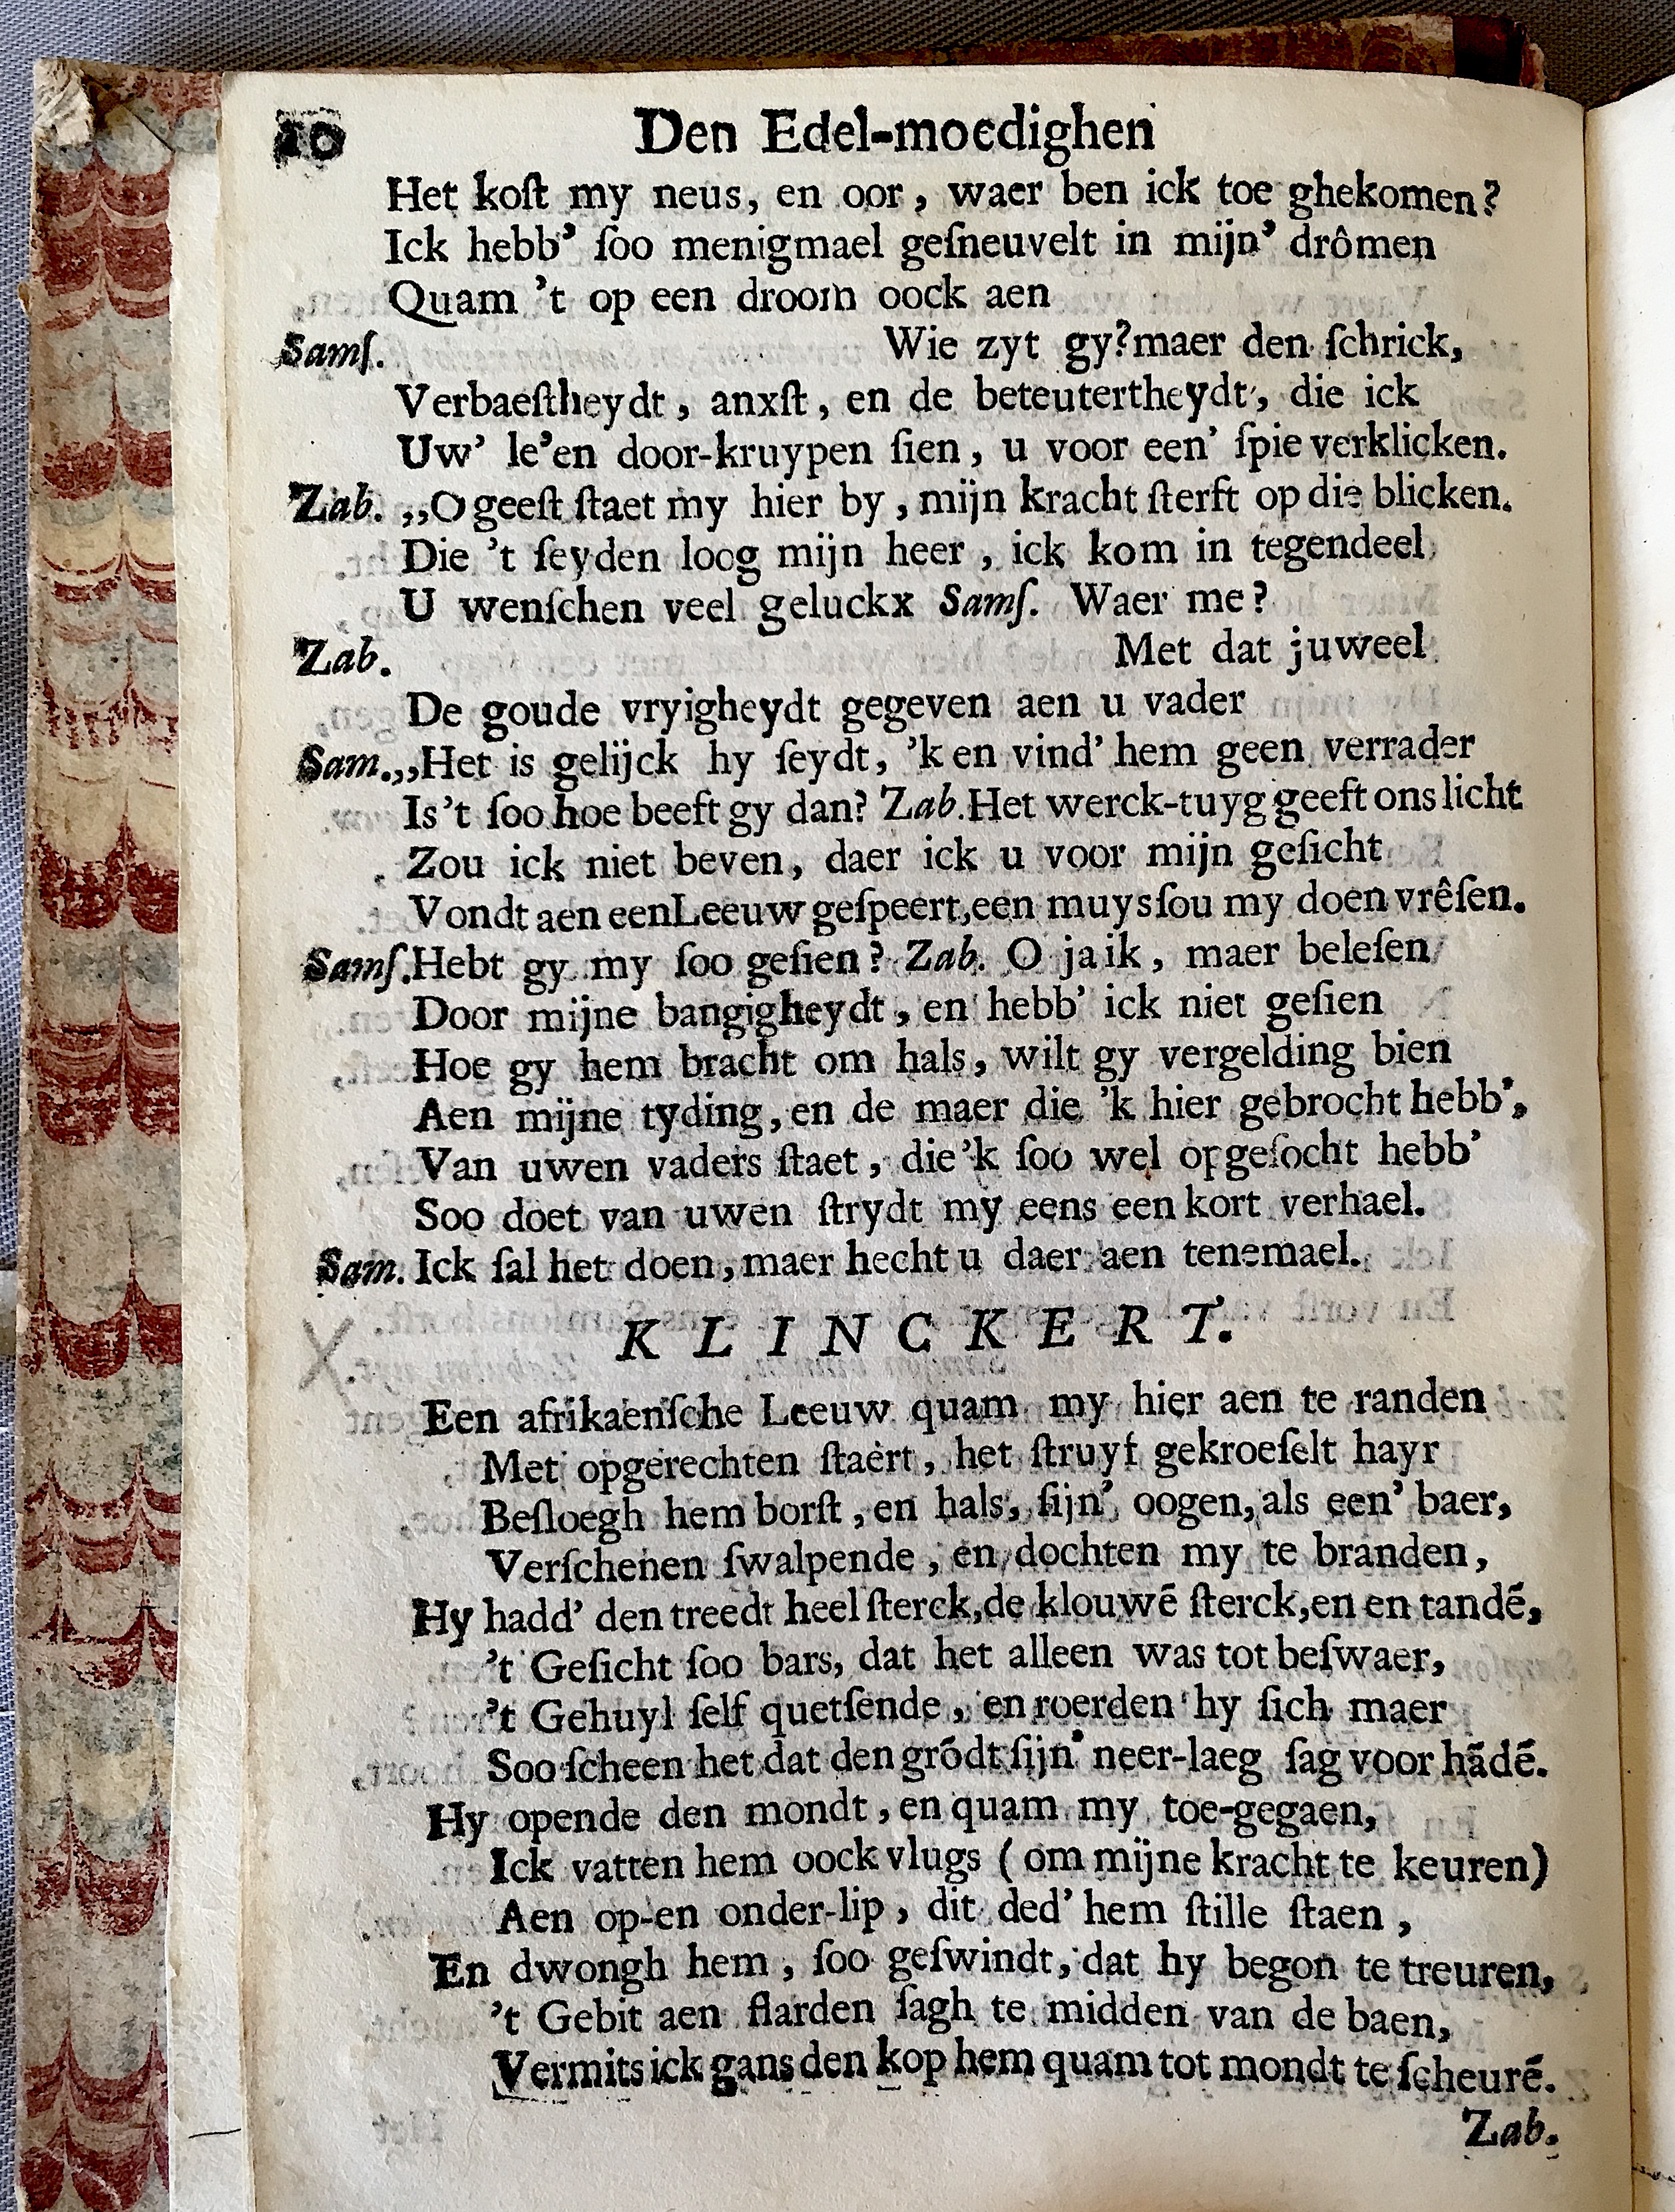 20 Den Edel-moedighen
Het koſt my neus, en oor, waer ben ick toe ghekomen?
Ick hebb' ſoo menigmael geſneuvelt in mijn' drômen
Quam 't op een droom oock aen
Samſ. Wie zyt gy? maer den ſchrick,
Verbaeſtheydt, anxſt, en de beteutertheydt, die ick
Uw' le'en door-kruypen ſien, u voor een' ſpie verklicken.
Zab. ,,O geeſt ſtaet my hier by, mijn kracht ſterft op die blicken.
Die 't ſeyden loog mijn heer, ick kom in tegendeel
U wenſchen veel geluckx Samſ. Waer me?
Zab. Met dat juweel
De goude vryigheydt gegeven aen u vader
Sam. ,,Het is gelijck hy ſeydt, 'k en vind' hem geen verrader
Is't ſoo hoe beeft gy dan? Zab. Het werck-tuyg geeft ons licht
Zou ick niet beven, daer ick u voor mijn geſicht
Vondt aen een Leeuw geſpeert, een muys ſou my doen vrêſen.
Samſ. Hebt gy my ſoo geſien? Zab. O ja ik, maer beleſen
Door mijne bangigheydt, en hebb' ick niet geſien
Hoe gy hem bracht om hals, wilt gy vergelding bien
Aen mijne tyding, en de maer die 'k hier gebrocht hebb',
Van uwen vaders ſtaet, die 'k ſoo wel opgeſocht hebb'
Soo doet van uwen ſtrydt my eens een kort verhael.
Sam. Ick ſal het doen, maer hecht u daer aen tenemael.
KLINCKERT.
Een afrikaenſche Leeuw quam my hier aen te randen
Met opgerechten ſtaert, het ſtruyf gekroeſelt hayr
Beſloegh hem borſt, en hals, ſijn' oogen, als een' baer,
Verſchenen ſwalpende, en dochten my te branden,
Hy hadd' den treedt heel ſterck, de klouwē ſterck, en en tandē,
't Geſicht ſoo bars, dat het alleen was tot beſwaer,
't Gehuyl ſelf quetſende, en roerden hy ſich maer
Soo ſcheen het dat den grōdt ſijn' neer-laeg ſag voor hādē.
Hy opende den mondt, en quam my toe-gegaen,
Ick vatten hem oock vlugs (om mijne kracht te keuren)
Aen op-en onder-lip, dit ded' hem ſtille ſtaen,
En dwongh hem, ſoo geſwindt, dat hy begon te treuren,
't Gebit aen flarden ſagh te midden van de baen,
Vermits ick gans den kop hem quam tot mondt te ſcheurē.
Zab.